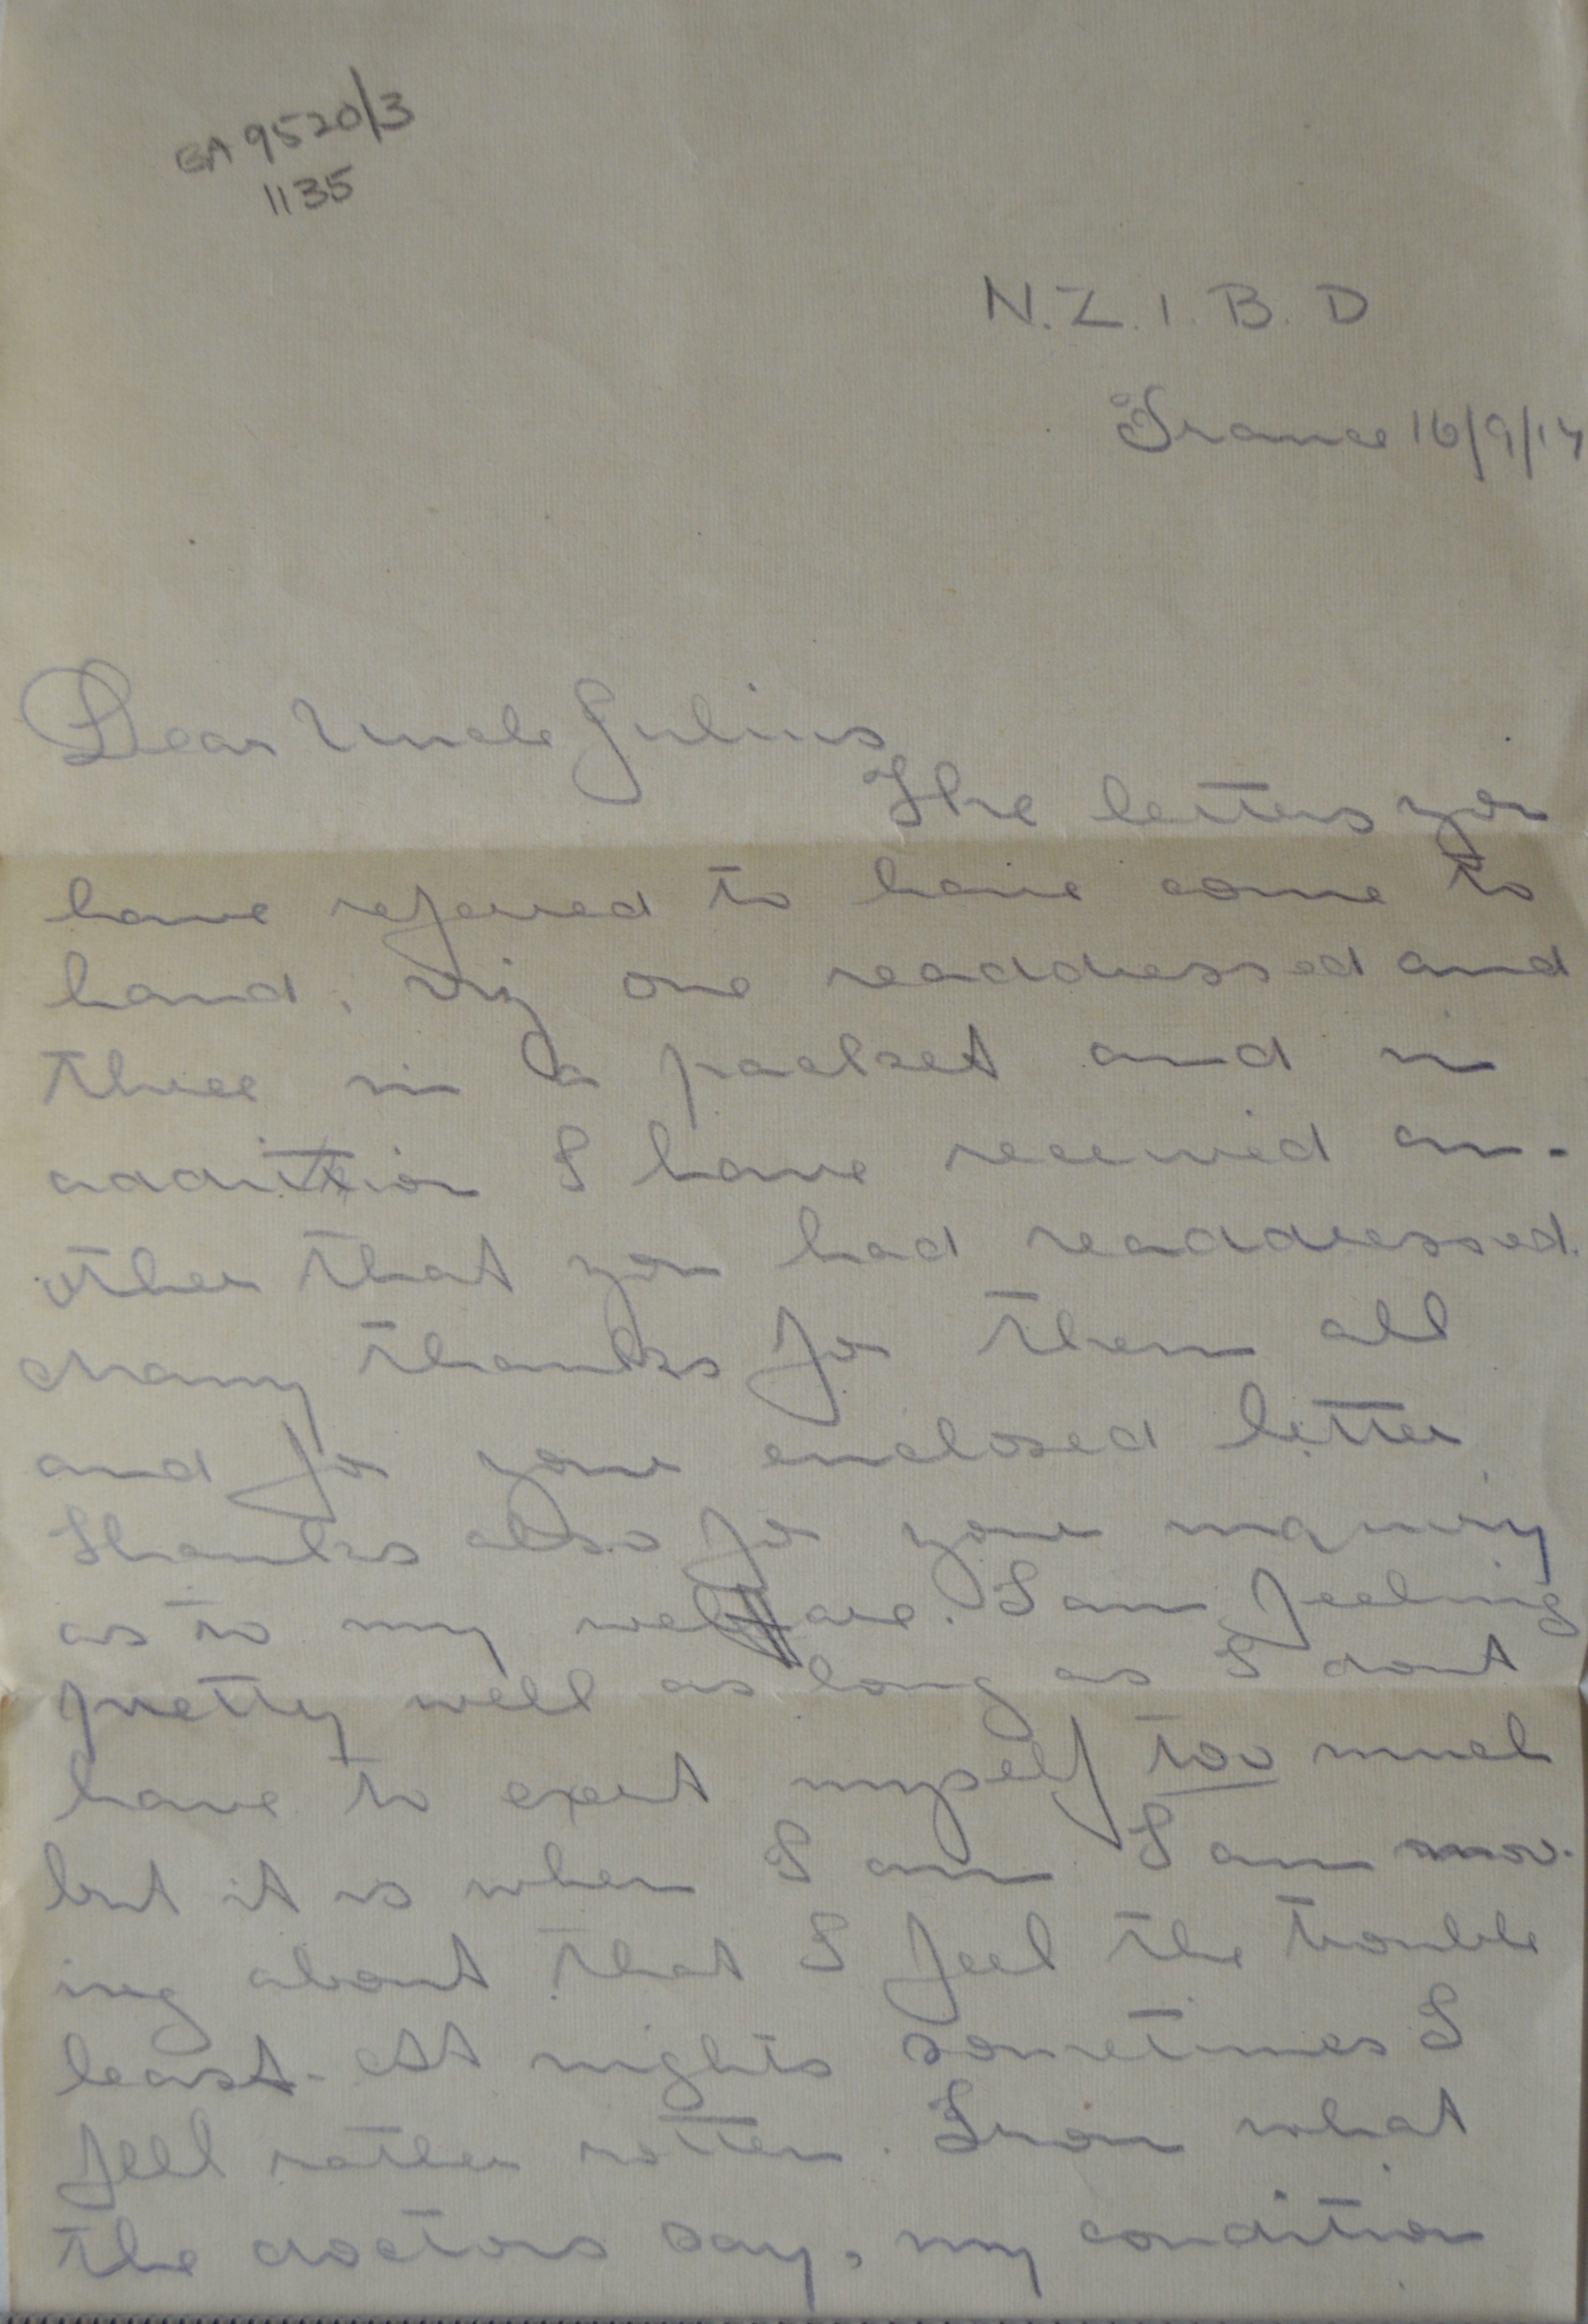 GA 9520/3
1135
N.Z.I.B.D
France 16/9/17
Dear Uncle Julius
The letters you
have referred to have come to
hand, viz one readdressed and
three in a packet and in
addition I have received an-
other that you had readdressed.
Many thanks for them all
and for your enclosed letter.
Thanks also for your inquiry
as to my welfare. I am feeling
pretty well as long as I dont
have to exert myself too much
but it is when I am I am mov-
ing about that I feel the trouble
least. At nights sometimes I
fell rather rotten. From what
the doctors say, my condition